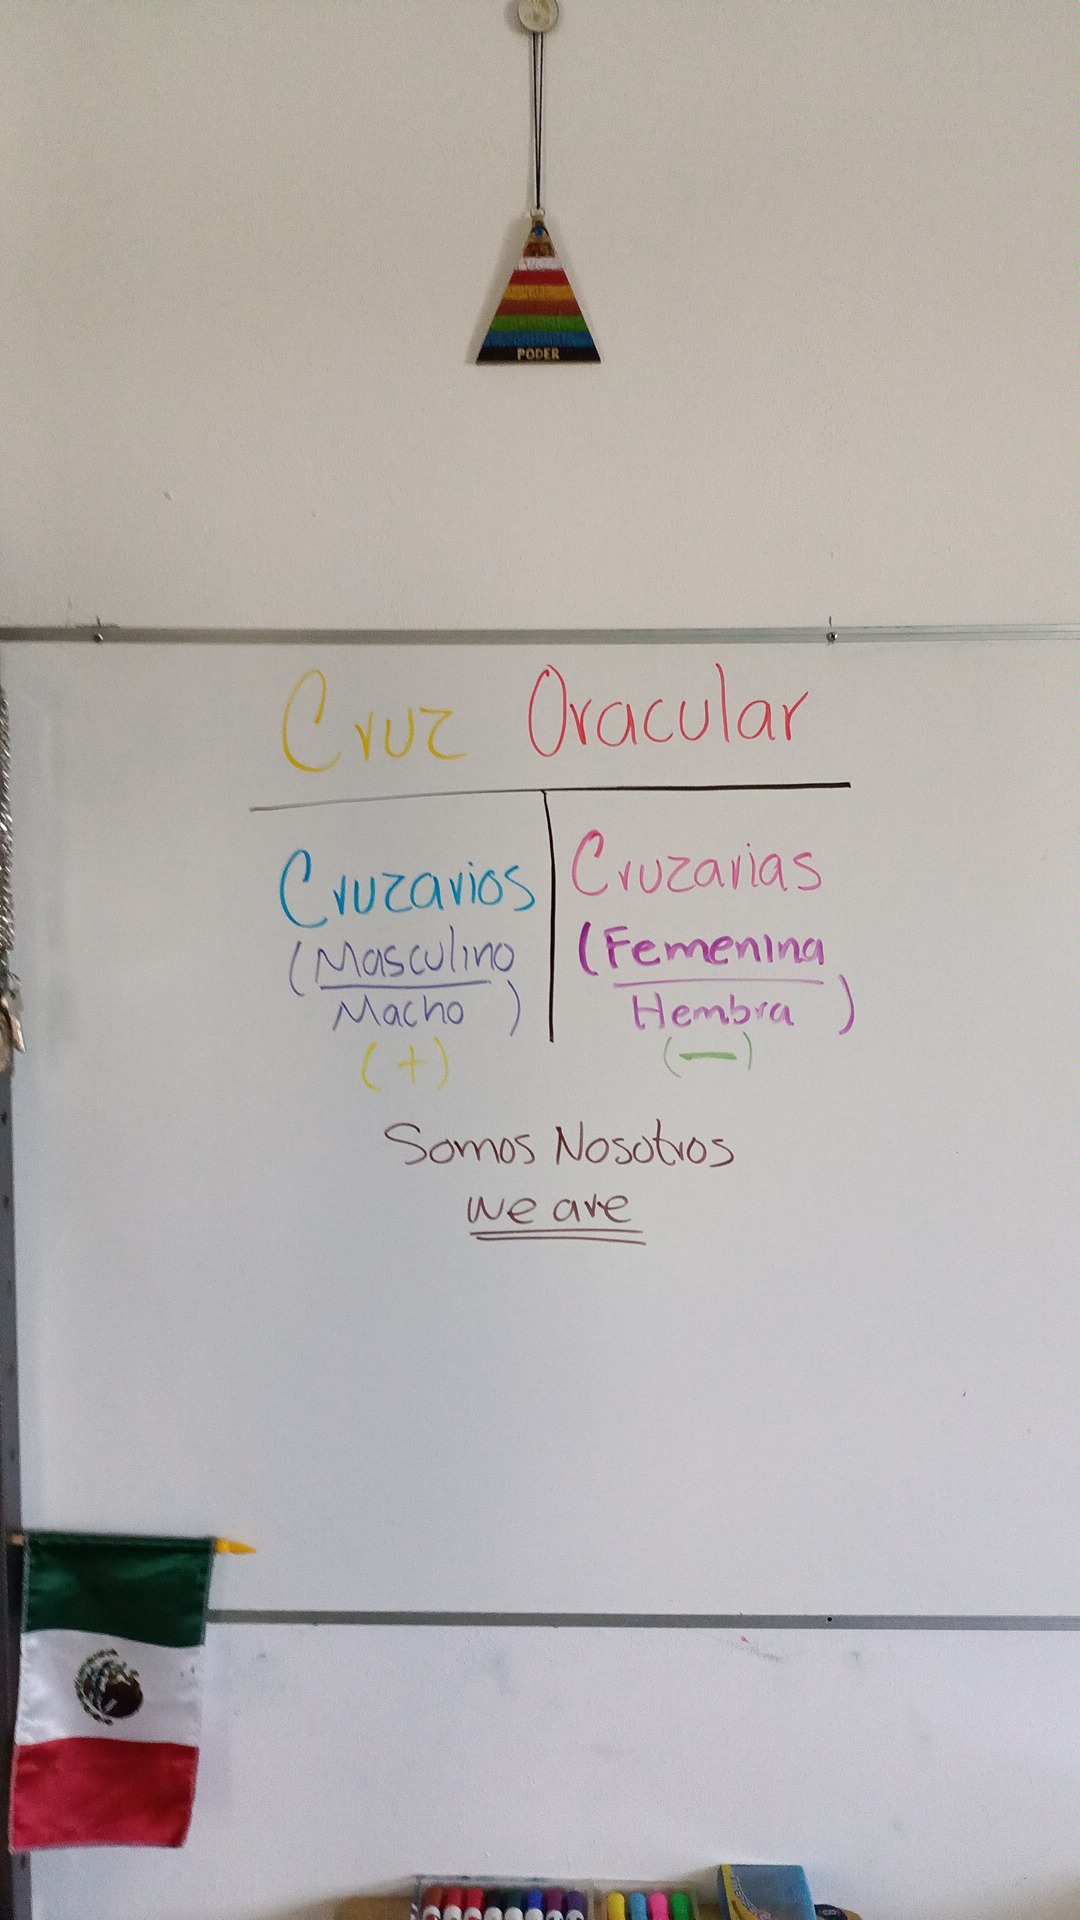 PODER
Cruz Oracular
Cruzarios
(Masculino
Macho)
(+)
Cruzarias
(Femenina
Hembra)
(—)
Somos Nosotros
we are